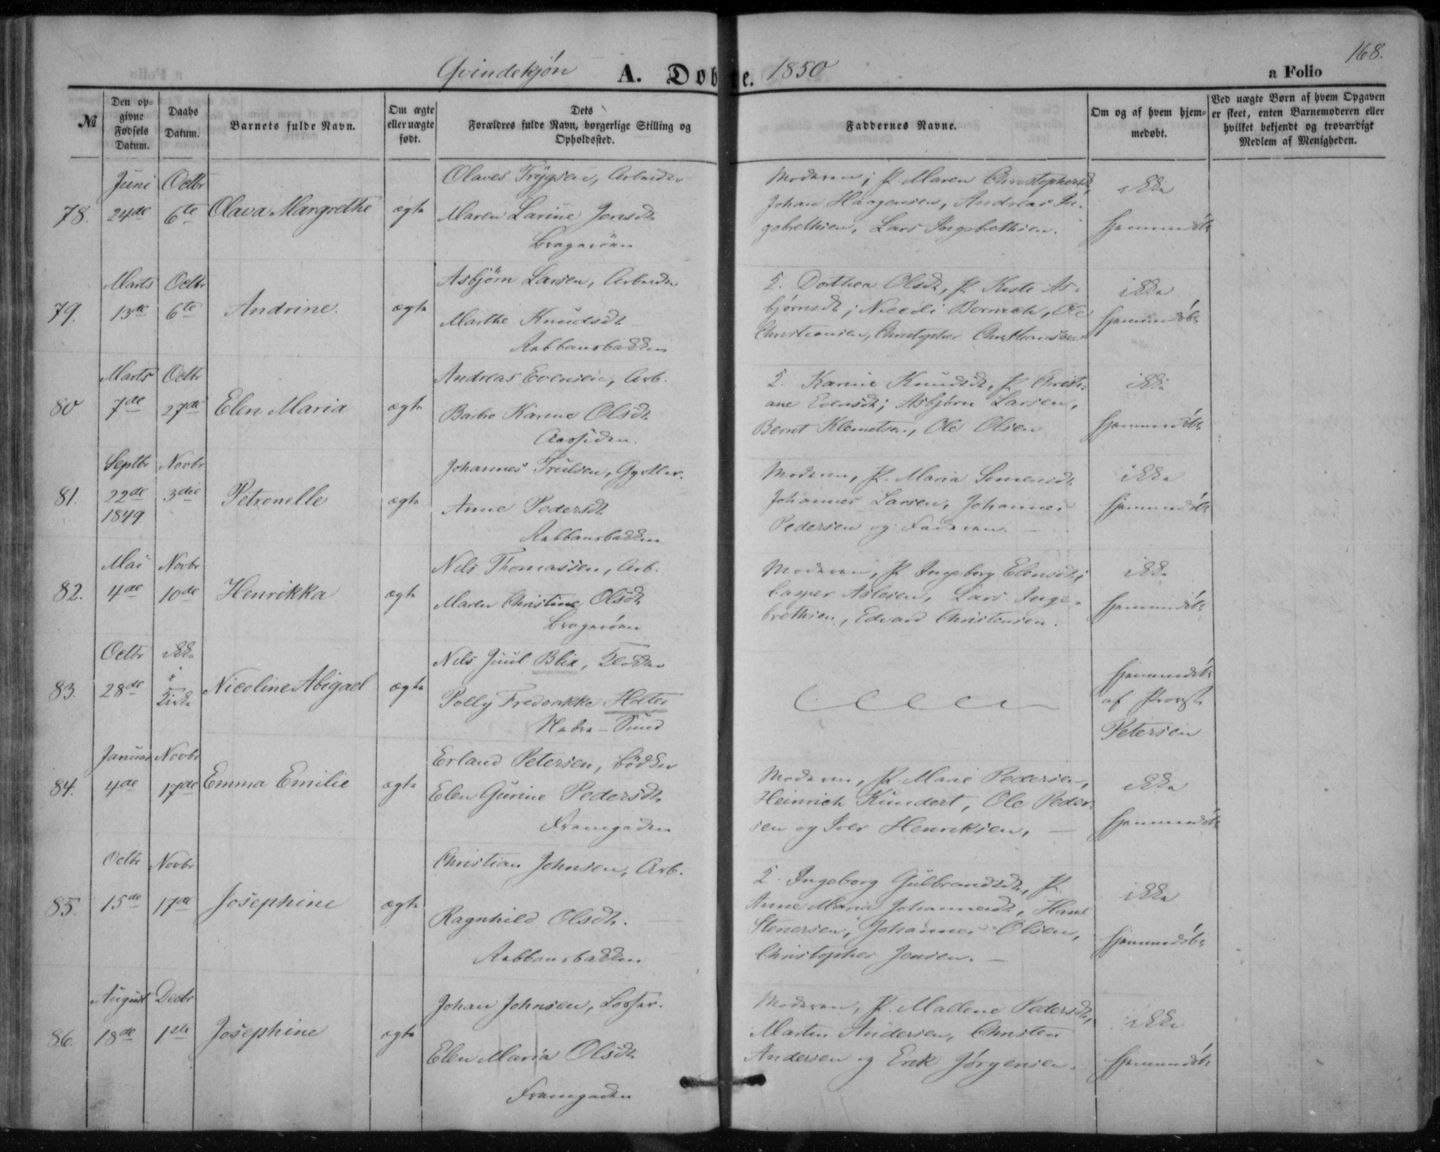 Qvindekjøn A. Døbte. 1850
168.
a Folio
№
Den opgivne Fødsels Datum.
Daabs Datum.
Barnets fulde Navn.
Om ægte eller uægte født.
Dets Forældres fulde Navn, borgerlige Stilling og Opholdssted.
Faddernes Navne.
Om og af hvem hjemmedøbt.
Ved uægte Børn af hvem Opgaven er skeet, enten Barnemoderen eller hvilket bekjendt og troværdigt Medlem af Menigheden.
78. Juni 24de Octbr 6te Olava Margrethe ægte
Olaves Trygsen, Arbeider
Maren Larine Jensdt
Bragerøen
Moderen; P. Maren Christophersdt
Johan Haagensen, Andreas In-
gebrethsen, Lars Ingebrethsen.
ikke
hjemmedøbt
79. Marts 13de Octbr 6te Andrine. ægte
Asbjørn Larsen, Arbeider
Marthe Knudsdt
S. Dorthea Olsdt, P. Kiste As-
bjørnsdt; Nicolai Bernrth, Ole
Christiansen, Christopher Christiansen
ikke
hjemmedøbt
80 Marts 7de Octbr 27de Elen Maria ægte
Andreas Evensen, Arb.
Barbo Karine Olsdt
Aassiden.
S. Karine Knudsdt, P. Christi-
ane Evensdt; Asbjørn Larsen,
Bernt Klemetsen, Ole Olsen
ikke
hjemmedøbt
81. Septbr 22de 1849 Novbr 3die Petronelle ægte
Johannes Truelsen, Gjørtler.
Anne Pedersdt
Moderen, P. Maria
Johannes Larsen, Johannes
Pedersen og Faderen.
ikke
hjemmedøbt
82. Mai 4de Novbr 10de Henrikka ægte
Nels Thomassen, Arb.
Maren Christine Olsdt
Bragerøen
Moderen, P. Ingeborg Elensdt;
Casper Aslesen, Lars Inge-
brethsen, Edvard Christensen.
ikke
hjemmedøbt
83. Octbr 28de ikke i Kirke Nicoline Abigael ægte
Nils Juul Blix,
Polly Fredrikke Holter
Sund
hjemmedøbt
af Provst
Petersen
84. Januar 4de Novbr 17de Emma Emilie ægte
Erland Petersen, Bødker
Elen Gurine Pedersdt
Framgaden
Moderen, P. Marie Pedersen,
Heinrich Kundert, Ole Peder-
sen og Iver Henriksen,
ikke
hjemmedøbt
85. Octbr 15de Novbr 17de Josephine ægte
Christian Johnsen, Arb.
Ragnhild Olsdt.
S. Ingeborg Gulbrandsdt, P.
Anne Marie Johannesdt, Hans
Stenersen, Johannes Olsen,
Christopher Jensen.
ikke
hjemmedøbt
86. August 18de Decbr 1ste Josephine ægte
Johan Johnsen,
Elen Maria Olsdt
Framgaden
Moderen, P. Mallene Pedersdt,
Marten Andersen, Christen
Andersen og Erik Jørgensen.
ikke
hjemmedøbt